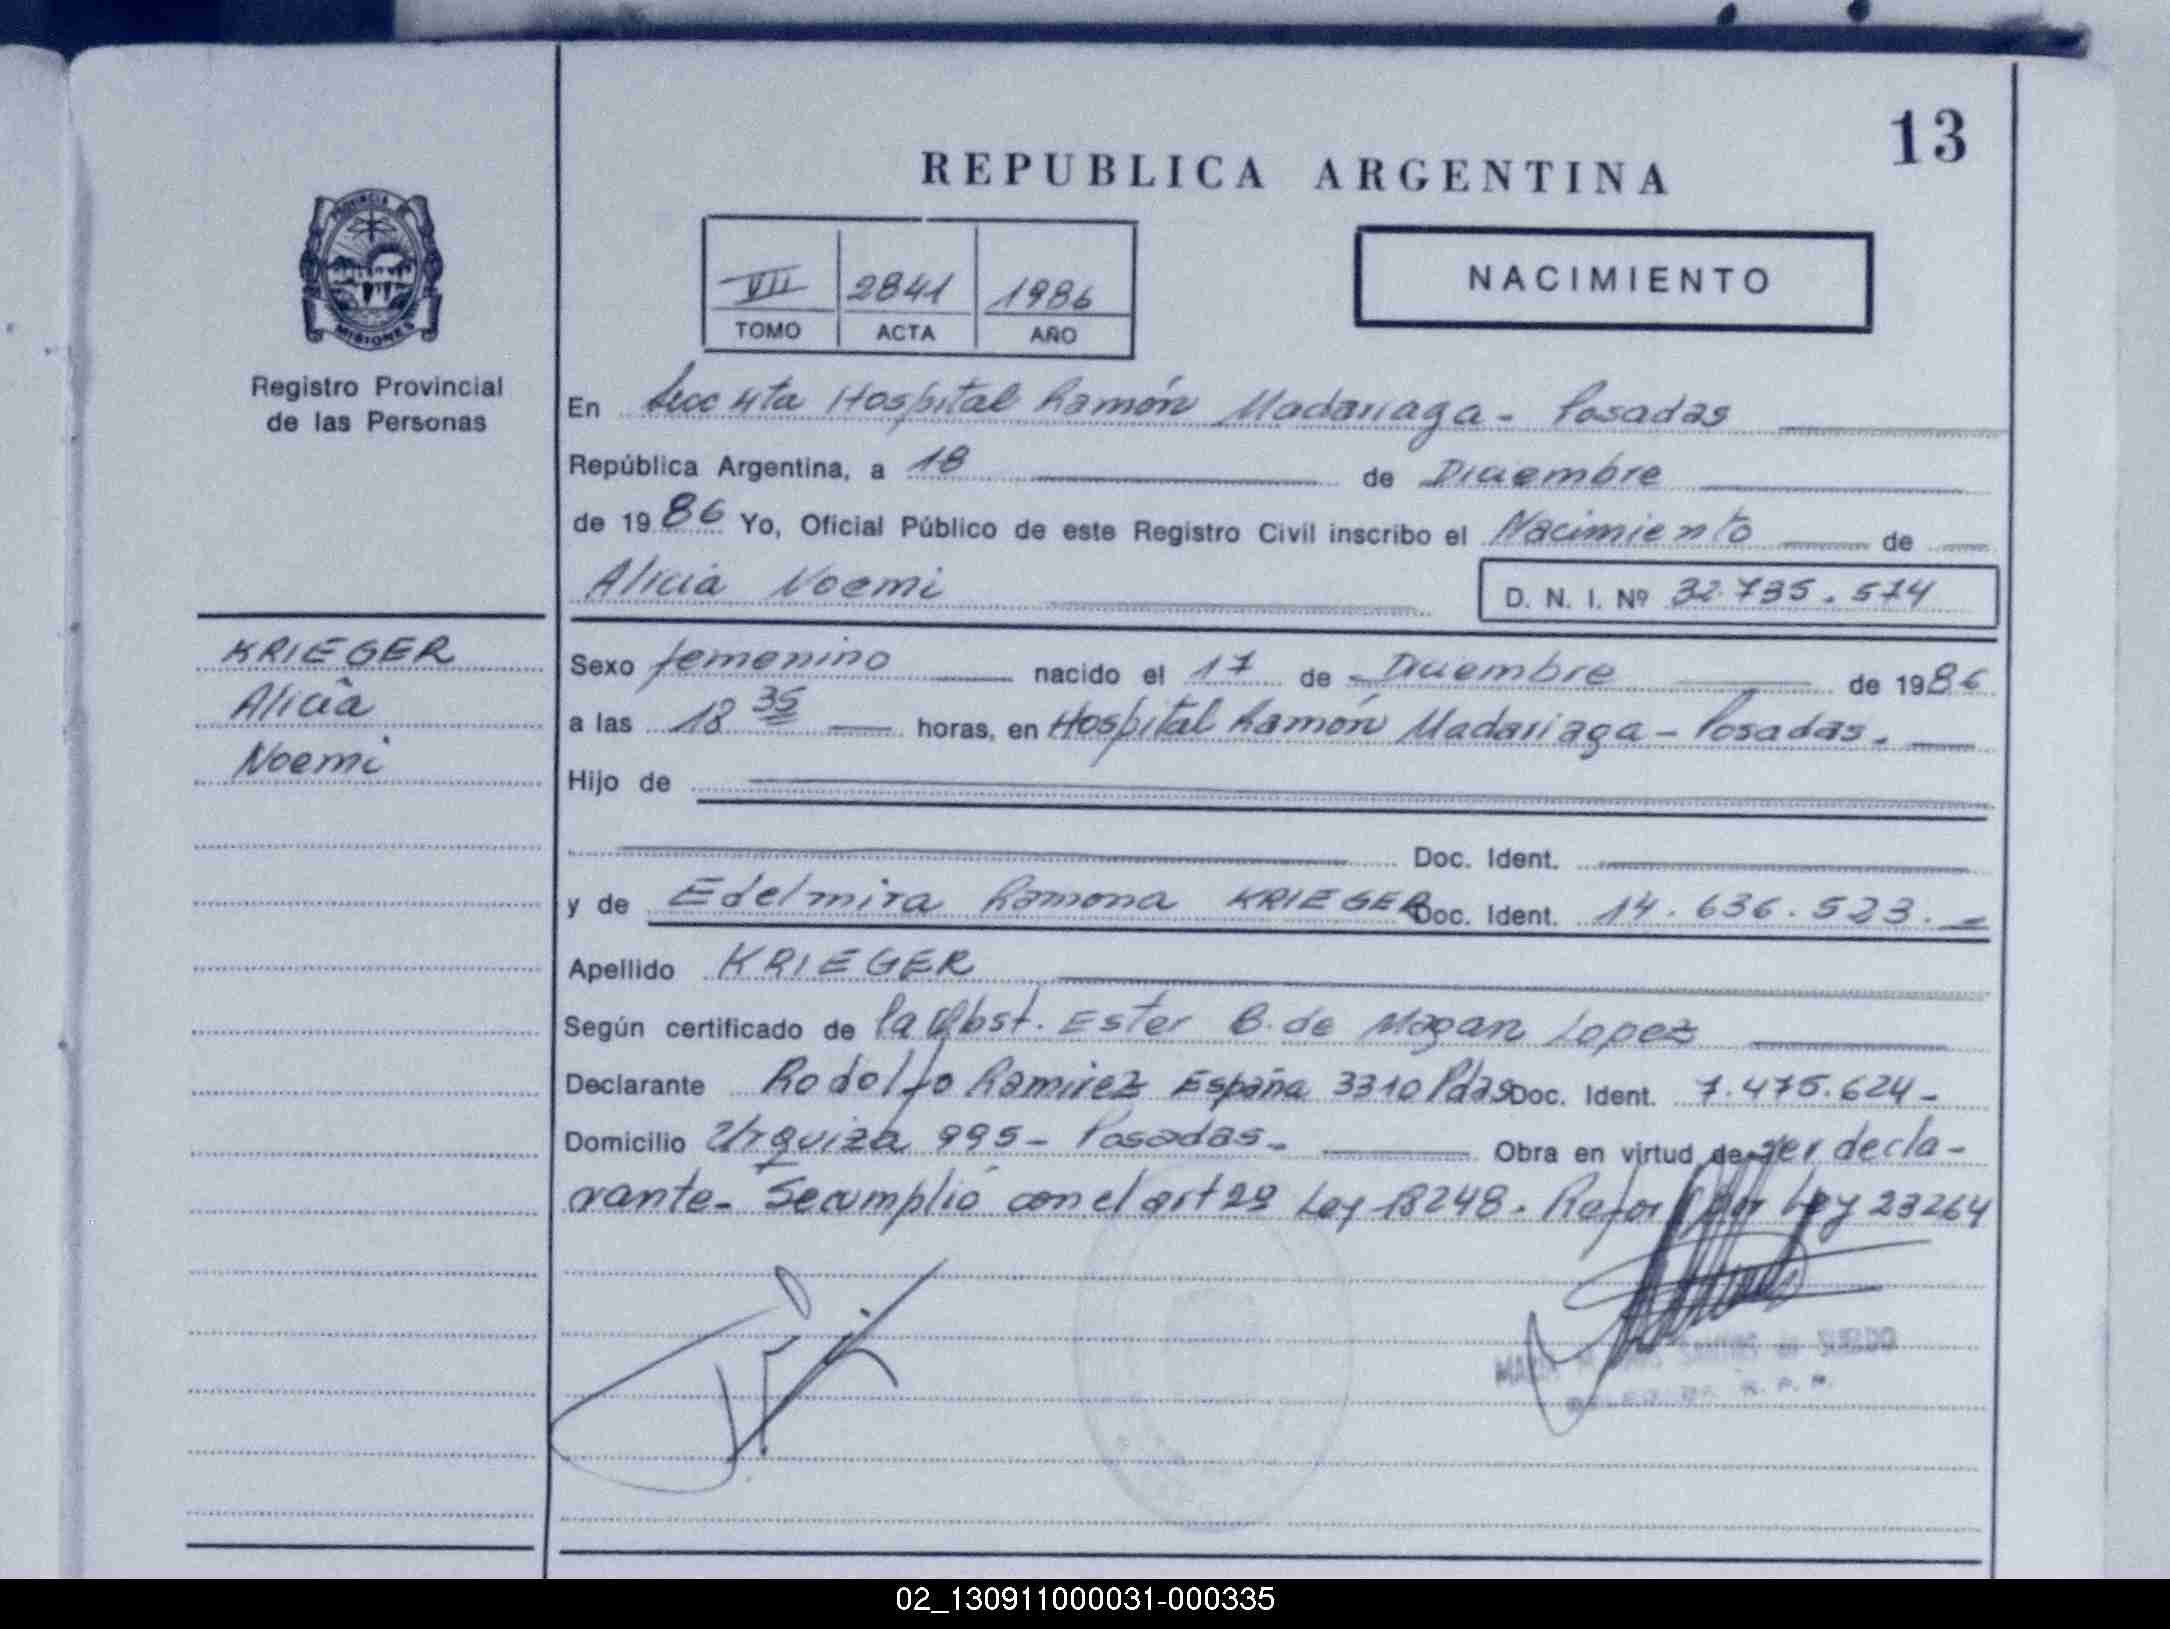 13
REPUBLICA ARGENTINA
PROVINCIA DE
MISIONES
Registro Provincial
de las Personas
VII 2841 1986
TOMO ACTA AÑO
NACIMIENTO
En Secc 4ta Hospital Ramón Madariaga - Posadas
República Argentina, a 18 de Diciembre
de 1986 Yo, Oficial Público de este Registro Civil inscribo el Nacimiento de
Alicia Noemi D. N. I. Nº 32.735.574
KRIEGER
Alicia
Noemi
Sexo femenino nacido el 17 de Diciembre de 1986
a las 18 35 horas, en Hospital Ramón Madariaga - Posadas.
Hijo de
Doc. Ident.
y de Edelmira Ramona KRIEGER Doc. Ident. 14.636.523.-
Apellido KRIEGER
Según certificado de la Obst. Ester B. de Magan Lopez
Declarante Rodolfo Ramirez España 3310 Pdas Doc. Ident. 7.475.624-
Domicilio Urquiza 995- Posadas- Obra en virtud de ser decla-
rante- Se cumplió con el art 2º Ley 18248. Refor por Ley 23264
R. P. P.
02_130911000031-000335